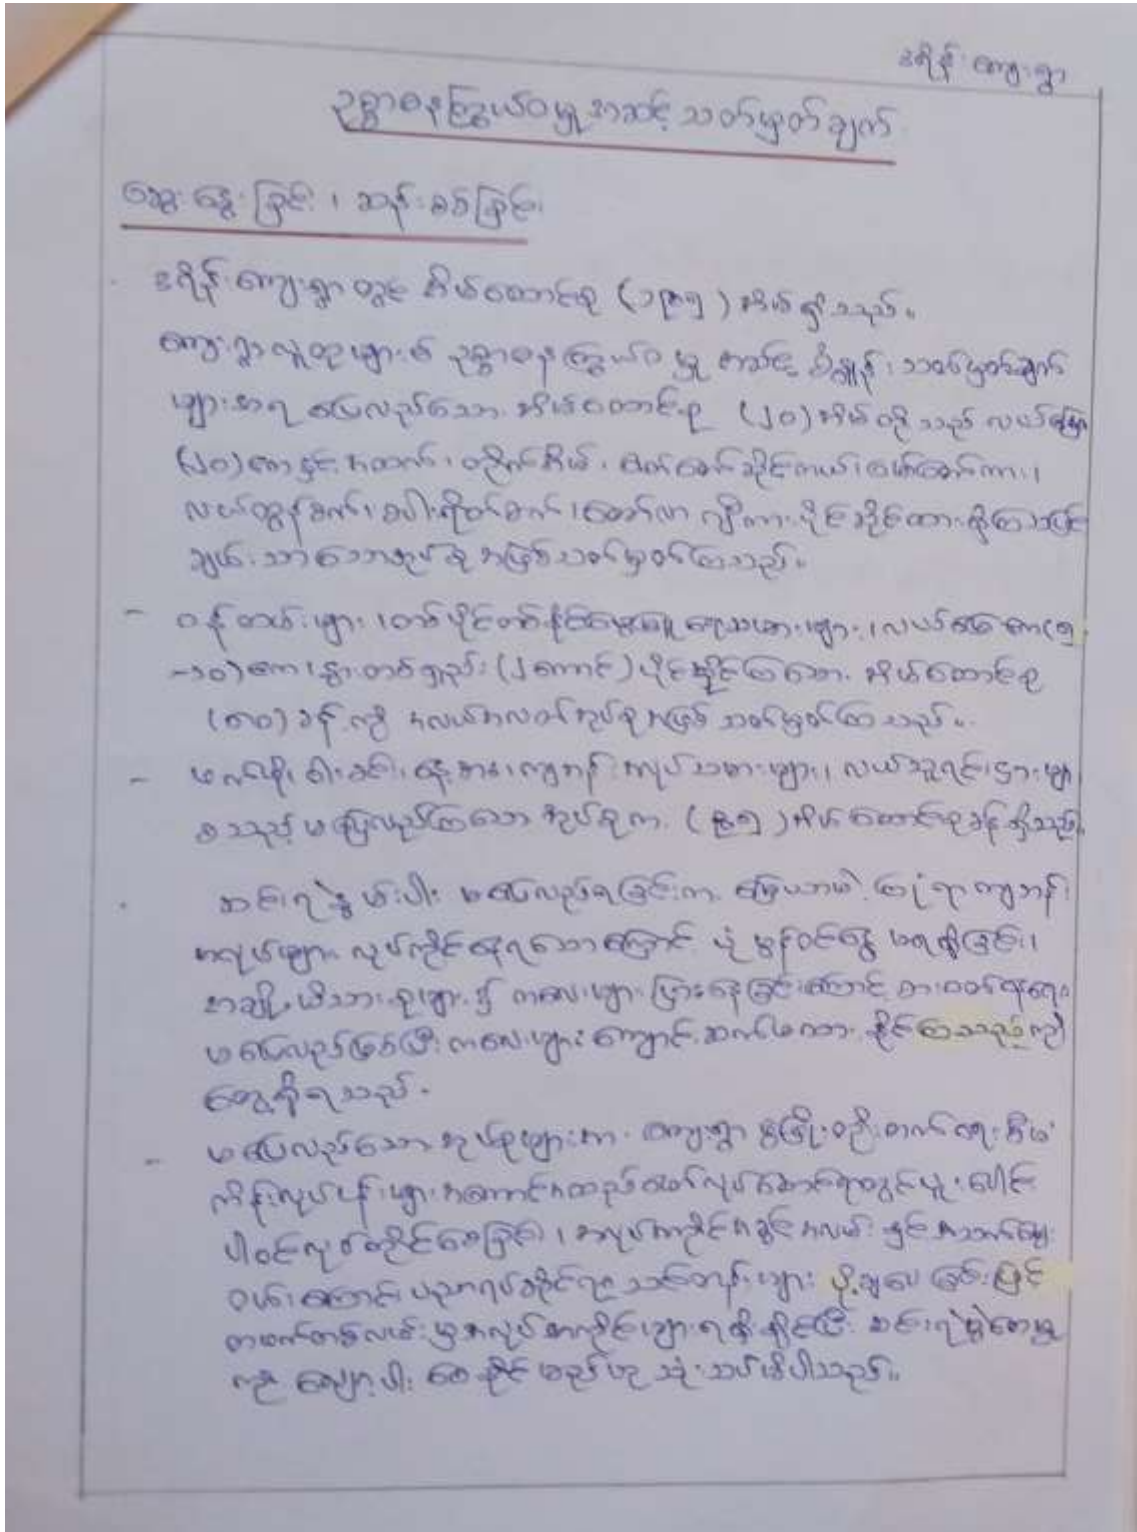 ဒရိန်းကျေးရွာ
ဥစ္စာဓနကြွယ်ဝမှုအဆင့်သတ်မှတ်ချက်
ဆွေးနွေးခြင်း၊ ဆန်းစစ်ခြင်း၊
ဒရိန်းကျေးရွာတွင် အိမ်ထောင်စု (၁၉၅) အိမ်ရှိသည်။
ကျေးရွာလူထုများ၏ ဥစ္စာဓနကြွယ်ဝမှု အဆင့် စံနှုန်း သတ်မှတ်ချက်
များအရ ပြေလည်သော အိမ်ထောင်စု (၂၀) အိမ်တို့သည် လယ်မြေ
(၂၀) ဧကနှင့်အထက်၊ တိုက်အိမ်၊ မော်တော်ဆိုင်ကယ်၊ မော်တော်ကား၊
လယ်ထွန်စက်၊ စပါးရိတ်စက်၊ ထော်လာဂျီကား ပိုင်ဆိုင်ထားရှိကြသဖြင့်
ချမ်းသာသောအုပ်စုအဖြစ်သတ်မှတ်ကြသည်။
- ဝန်ထမ်းများ၊ တစ်ပိုင်တစ်နိုင်မွေးမြူရေးသမားများ၊ လယ်မြေဧက(၅
-၁၀)ဧက၊ နွားတစ်ရှဉ်း (၂ကောင်) ပိုင်ဆိုင်ကြသော အိမ်ထောင်စု
(၈၀) ခန့်ကို အလယ်အလတ်အုပ်စုအဖြစ် သတ်မှတ်ကြသည်။
- မုဆိုးမ၊ နေ့စား၊ ကျပန်းလုပ်သားများ၊ လယ်သူရင်းငှားများ
စသည့် မပြေလည်ကြသော အုပ်စုက (၉၅) အိမ်ထောင်စုခန့်ရှိသည်။
ဆင်းရဲနွမ်းပါး မပြေလည်ရခြင်းက မြေယာမဲ့ ကျပန်း
အလုပ်များ လုပ်ကိုင်နေရသောကြောင့် ပုံမှန်ဝင်ငွေ မရရှိခြင်း၊
အချို့မိသားစုများ၌ ကလေးများပြားနေခြင်းကြောင့် စားဝတ်နေရေး
မပြေလည်ဖြစ်ပြီး ကလေးများ ကျောင်းဆက်မထားနိုင်ကြသည်ကို
တွေ့ရှိရသည်။
- မပြေလည်သော အုပ်စုများအား ကျေးရွာဖွံ့ဖြိုးတိုးတက်ရေးစီမံ
ကိန်းလုပ်ငန်းများ အကောင်အထည်ဖော်လုပ်ဆောင်ရာတွင် ပူးပေါင်း
ပါဝင်လုပ်ကိုင်စေခြင်း၊ အလုပ်အကိုင်အခွင့်အလမ်းနှင့်အသက်မွေး
ဝမ်းကျောင်းပညာရပ်ဆိုင်ရာ သင်တန်းများ ပို့ချပေးခြင်းဖြင့်
တစ်ဖက်တစ်လမ်းမှအလုပ်အကိုင်များရရှိနိုင်ပြီး ဆင်းရဲမွဲတေမှု
ကို လျော့ပါးစေနိုင်မည်ဟု သုံးသပ်မိပါသည်။